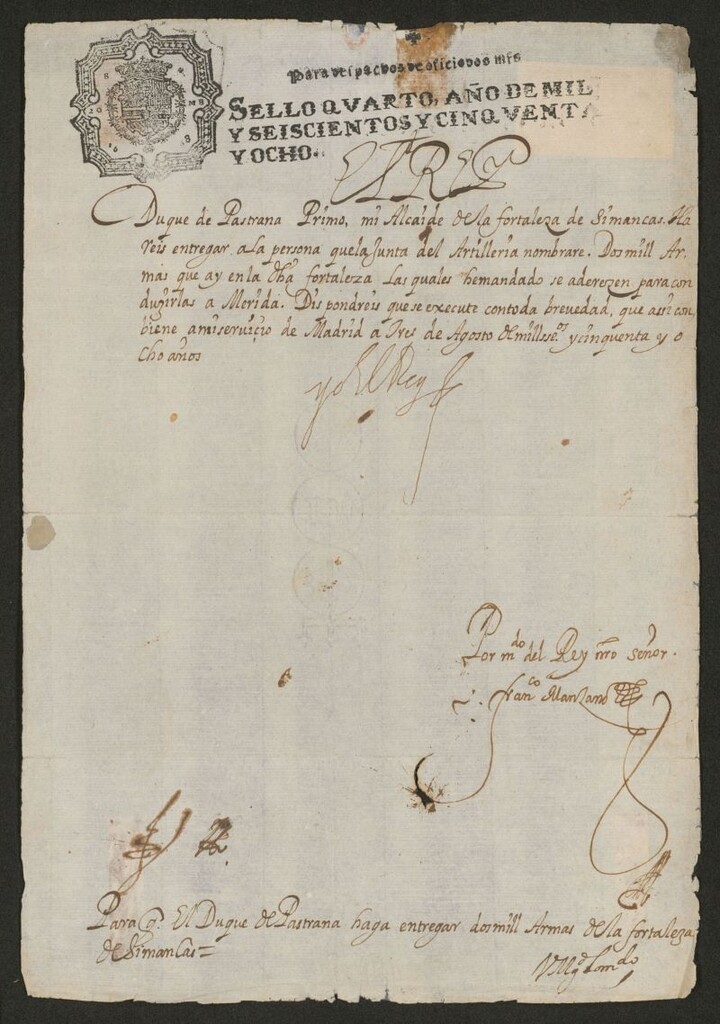 Para despachos de oficio dos mrs
SELLO QVARTO, AÑO DE MIL
Y SEISCIENTOS Y CINQVENTA
Y OCHO.
El Rey
Duque de Pastrana Primo, mi Alcaide de la fortaleza de Simancas. Ha
reis entregar a la persona que la Junta del Artilleria nombrare. Dos mill Ar
mas que ay en la dha fortaleza Las quales he mandado se aderezen para con
duzirlas a Merida. Dispondreis que se execute con toda brevedad, que assi con
biene a mi serviçio de Madrid a Tres de Agosto de mill y ssos y cinquenta y o
cho años
yo El Rey
Por mdo del Rey nro señor.
Franco Manzano
Para q. El Duque de Pastrana haga entregar dos mill Armas de la fortaleza
de Simancas =
V Mgd lo mdo